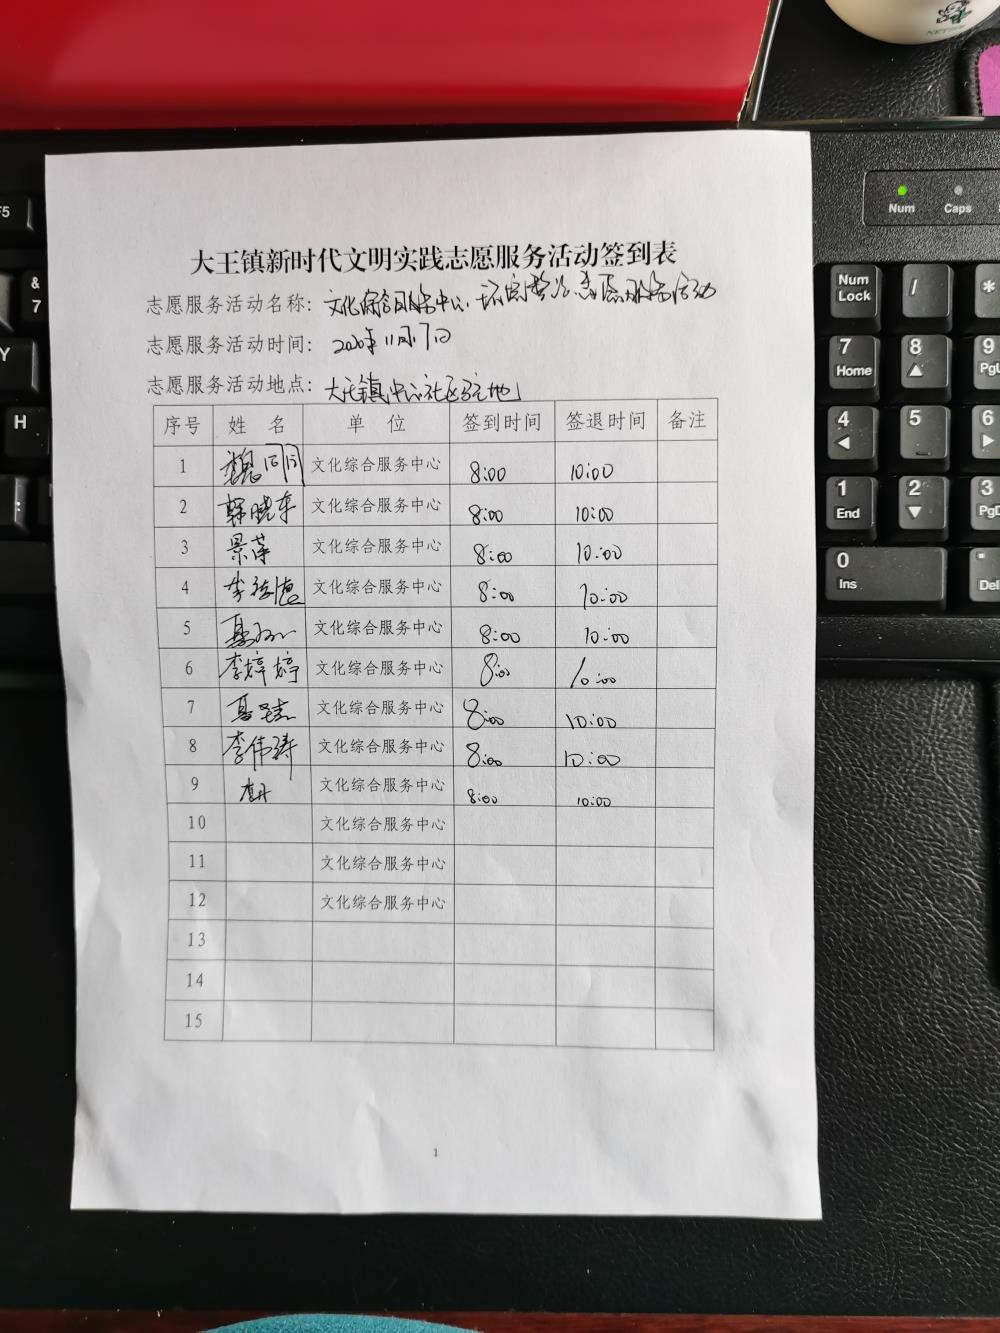 大王镇新时代文明实践志愿服务活动签到表
志愿服务活动名称：文化综合服务中心环境整治志愿服务活动
志愿服务活动时间：2020年11月17日
志愿服务活动地点：大王镇中心社区驻地
序号 姓 名 单 位 签到时间 签退时间 备注
1 魏同同 文化综合服务中心 8:00 10:00
2 韩晓东 文化综合服务中心 8:00 10:00
3 景萍 文化综合服务中心 8:00 10:00
4 李 文化综合服务中心 8:00 10:00
5 文化综合服务中心 8:00 10:00
6 李婷婷 文化综合服务中心 8:00 10:00
7 文化综合服务中心 8:00 10:00
8 李伟涛 文化综合服务中心 8:00 10:00
9 文化综合服务中心 8:00 10:00
10 文化综合服务中心
11 文化综合服务中心
12 文化综合服务中心
13
14
15
1
F5
&
7
Y
H
Num Caps
Num Lock / *
7 Home 8 9 PgU
4 5 6
1 End 2 3 PgD
0 Ins . Del